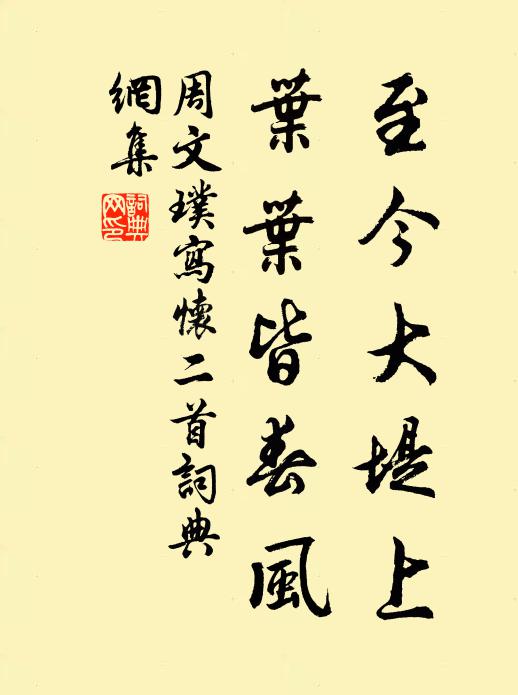 至今大堤上
葉葉皆春風
周文璞寫懷二首詞典
網集
詞典
网印